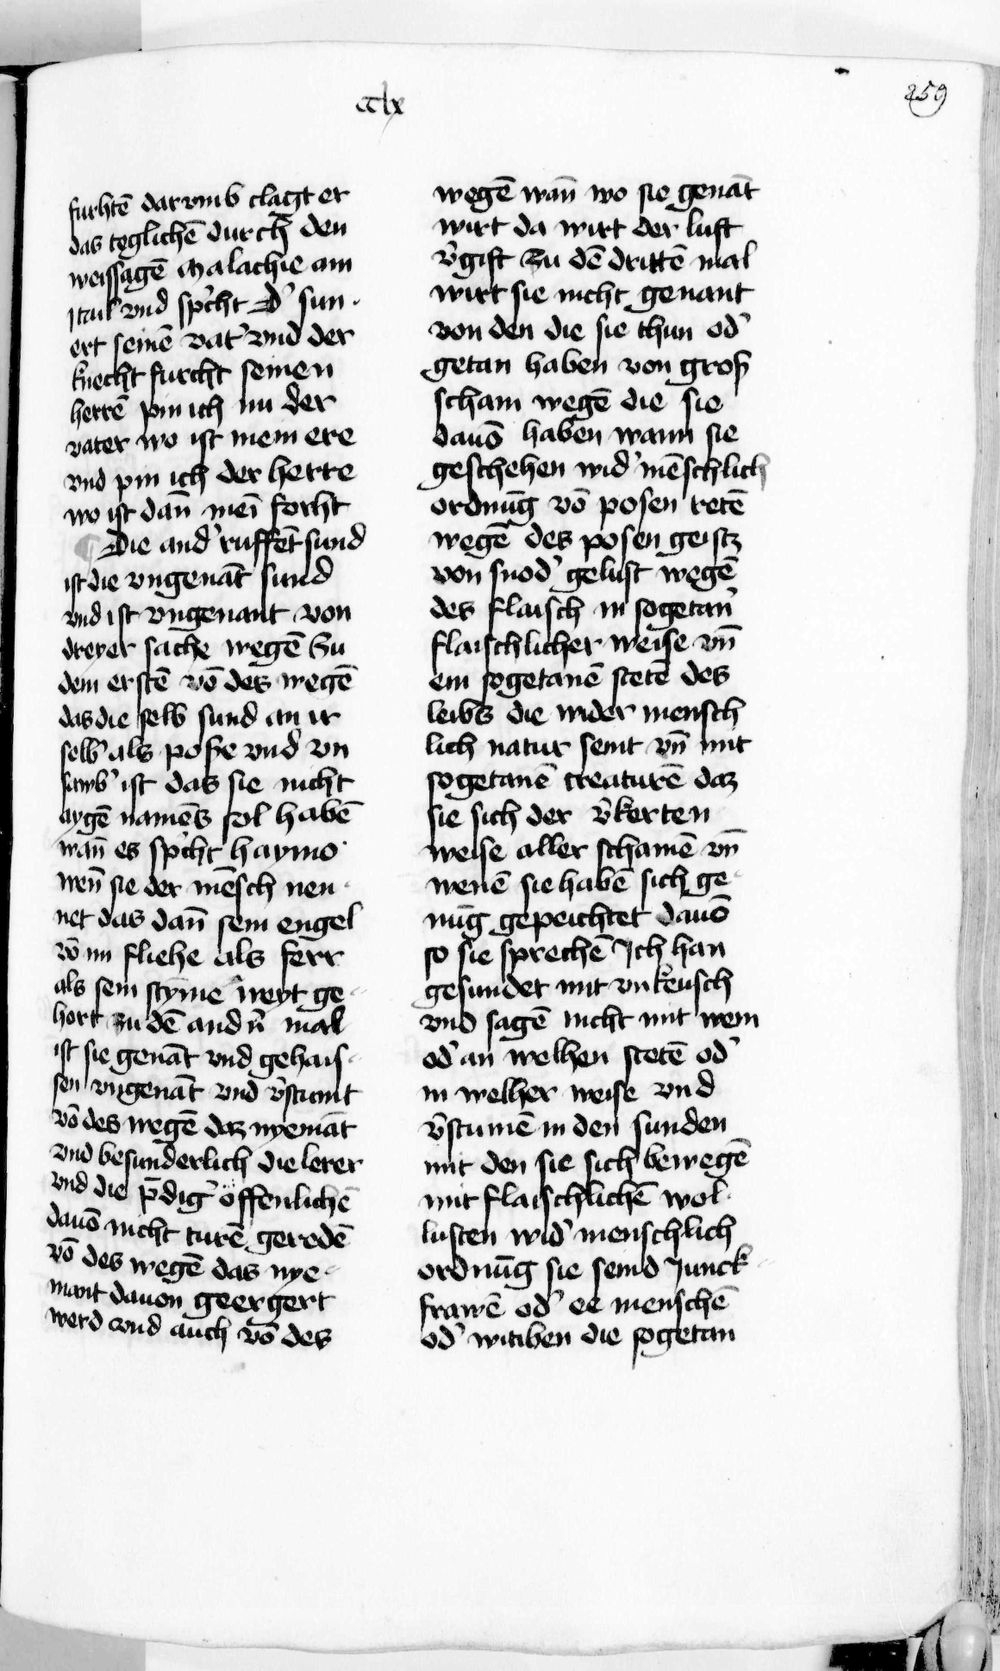 cclx
259
furhtē dar vmb clagt er
das teglichē durch den
weissagē Malachie am
j cail vnd sp̄cht D' sun
ert seinē vat' vnd der
knecht furcht seinen
herrē pin ich nu der
vater wo ist mein ere
vnd pin ich der herre
wo ist dan̄ meī forcht
¶ Die and' ruffēt sund
ist die vngenāt sund
vnd ist vngenant von
dreyer sache wegē Zu
dem erstē vō des wegē
das die selb sund an ir
selb' als pos̄e vnd vn
sawb' ist das sie nicht
aygē namēs sol habē
wan̄ es sp̄cht haymo
wen̄ sie der mēsch nen
net das dan̄ sein engel
vō im fliehe als ferr
als sein stȳme weyt ge
hort zu dē and'n̄ mal
ist sie genāt vnd gehais
sen vngenāt vnd v̄stumt
vō des wegē daz nyemāt
vnd besunderlich die lerer
vnd die p̄dig' offenlichē
dauō nicht turē geredē
vō des wegē das nye
mant dauon geergert
werd vnd auch vō des
wegē wan̄ wo sie genāt
wirt da wirt der luft
v̄gift Zu dē drittē mal
wirt sie nicht genant
von den die sie thun od'
getan haben von gros̄
scham wegē die sie
dauō haben wann sie
geschehen wid' mēschlich
ordnūg vō posen retē
wegē des posen geistz
von snod' gelust wegē
des flaisch in sogetan'
flaischlicher weise vn̄
ein sogetanē stetē des
leibs die wider mensch
lich natur seint vn̄ mit
sogetanē creaturē daz
sie sich der v̄kerten
weise aller schamē vn̄
wenē sie habē sich ge
nūg gepeichtet dauō
so sie sprechē Ich han
gesundet mit vnkeusch
vnd sagē nicht mit wem
od' an welhen stetē od'
in welher weise vnd
v̄stumē in den sunden
mit den sie sich bewegē
mit flaischlichē wol
lusten wid' menschlich
ordnūg sie seind Junck
frawē od' ee menschē
od' witiben die sogetan